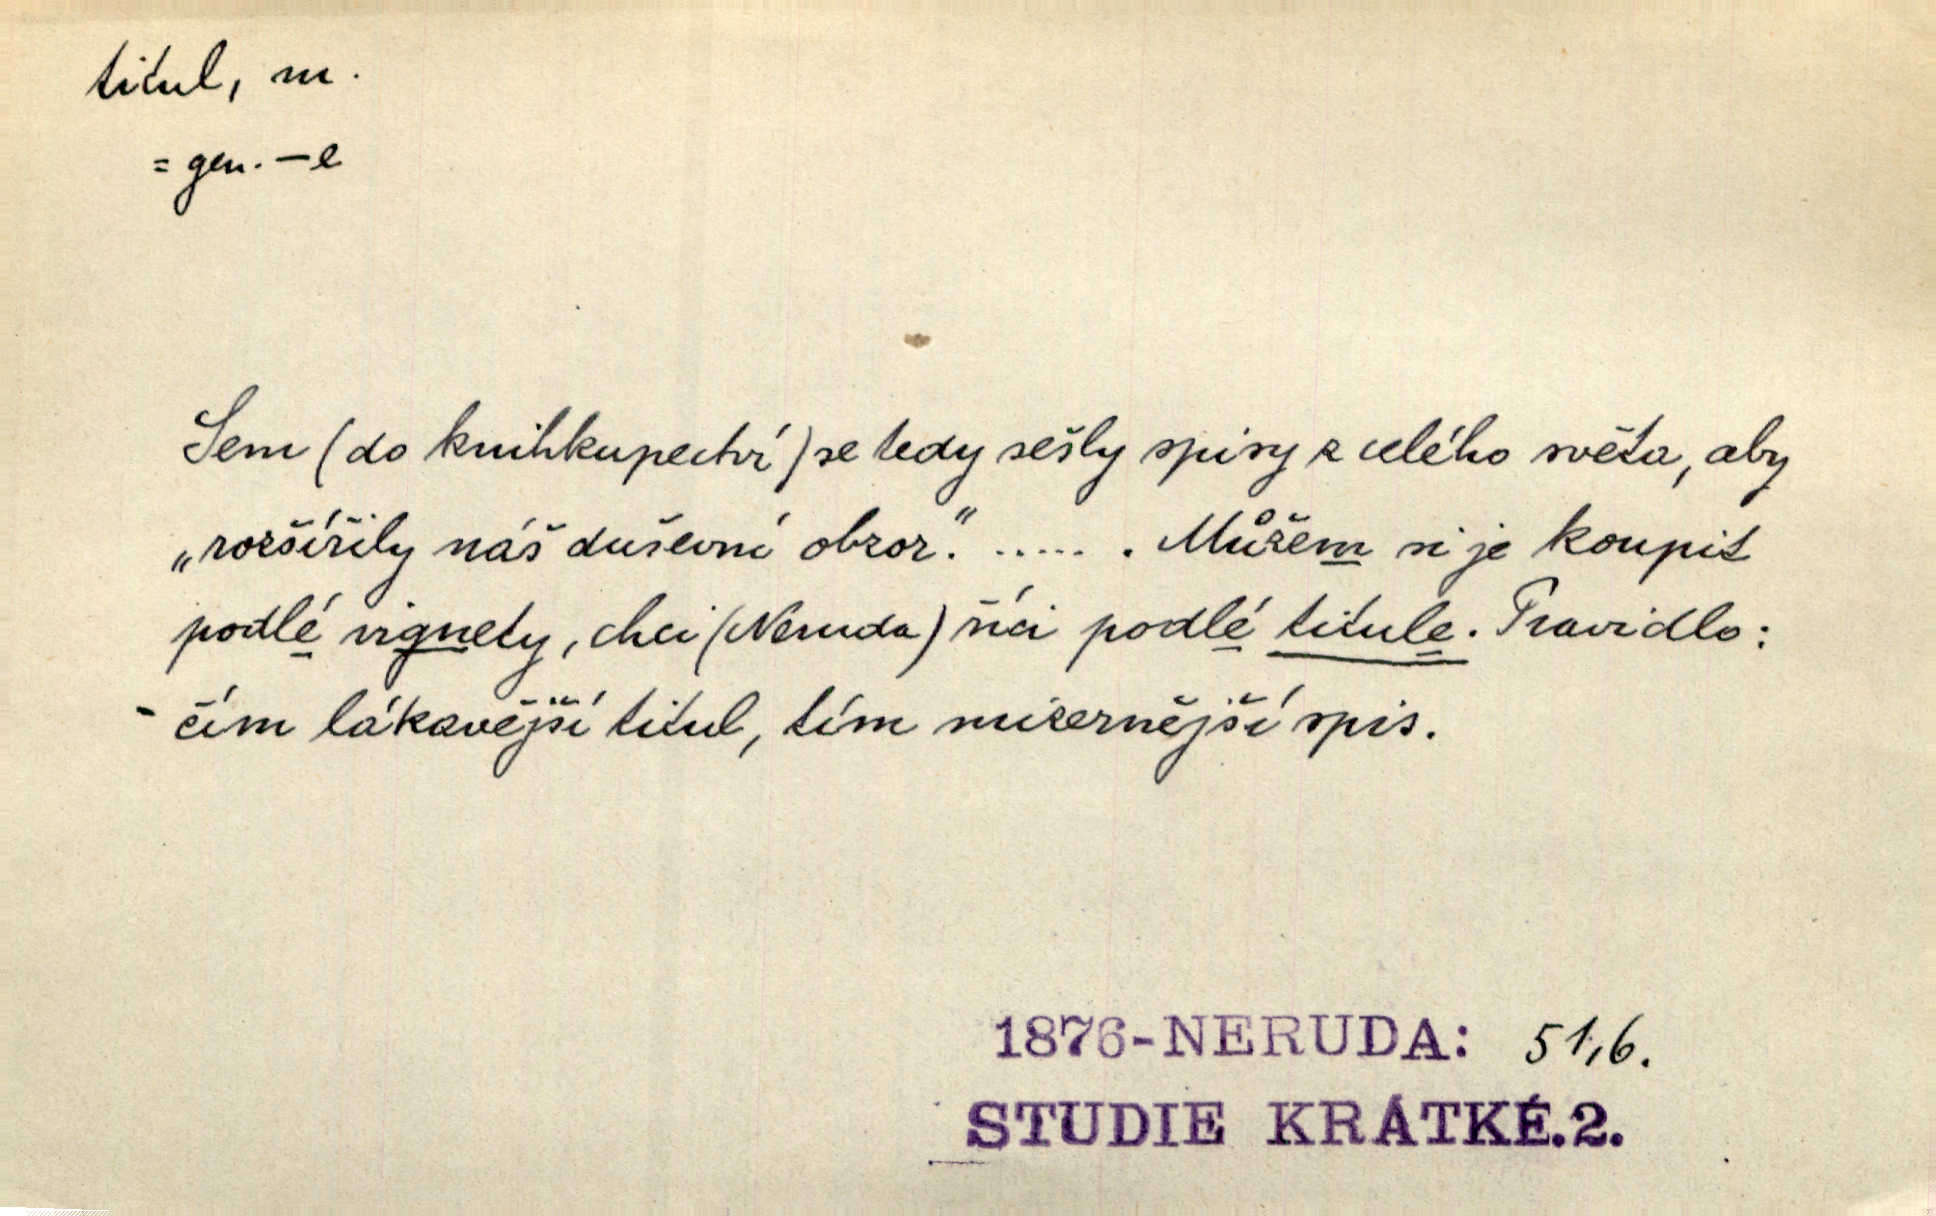 titul, m.
= gen. –e
Sem (do knihkupectví) se tedy sešly spisy z celého světa, aby
„rozšířily náš duševní obzor.“ ..... . Můžem si je koupit
podlé vignety, chci (Neruda) říci podlé titule. Pravidlo:
čím lákavější titul, tím mizernější spis.
1876-NERUDA: 51,6.
STUDIE KRÁTKÉ.2.